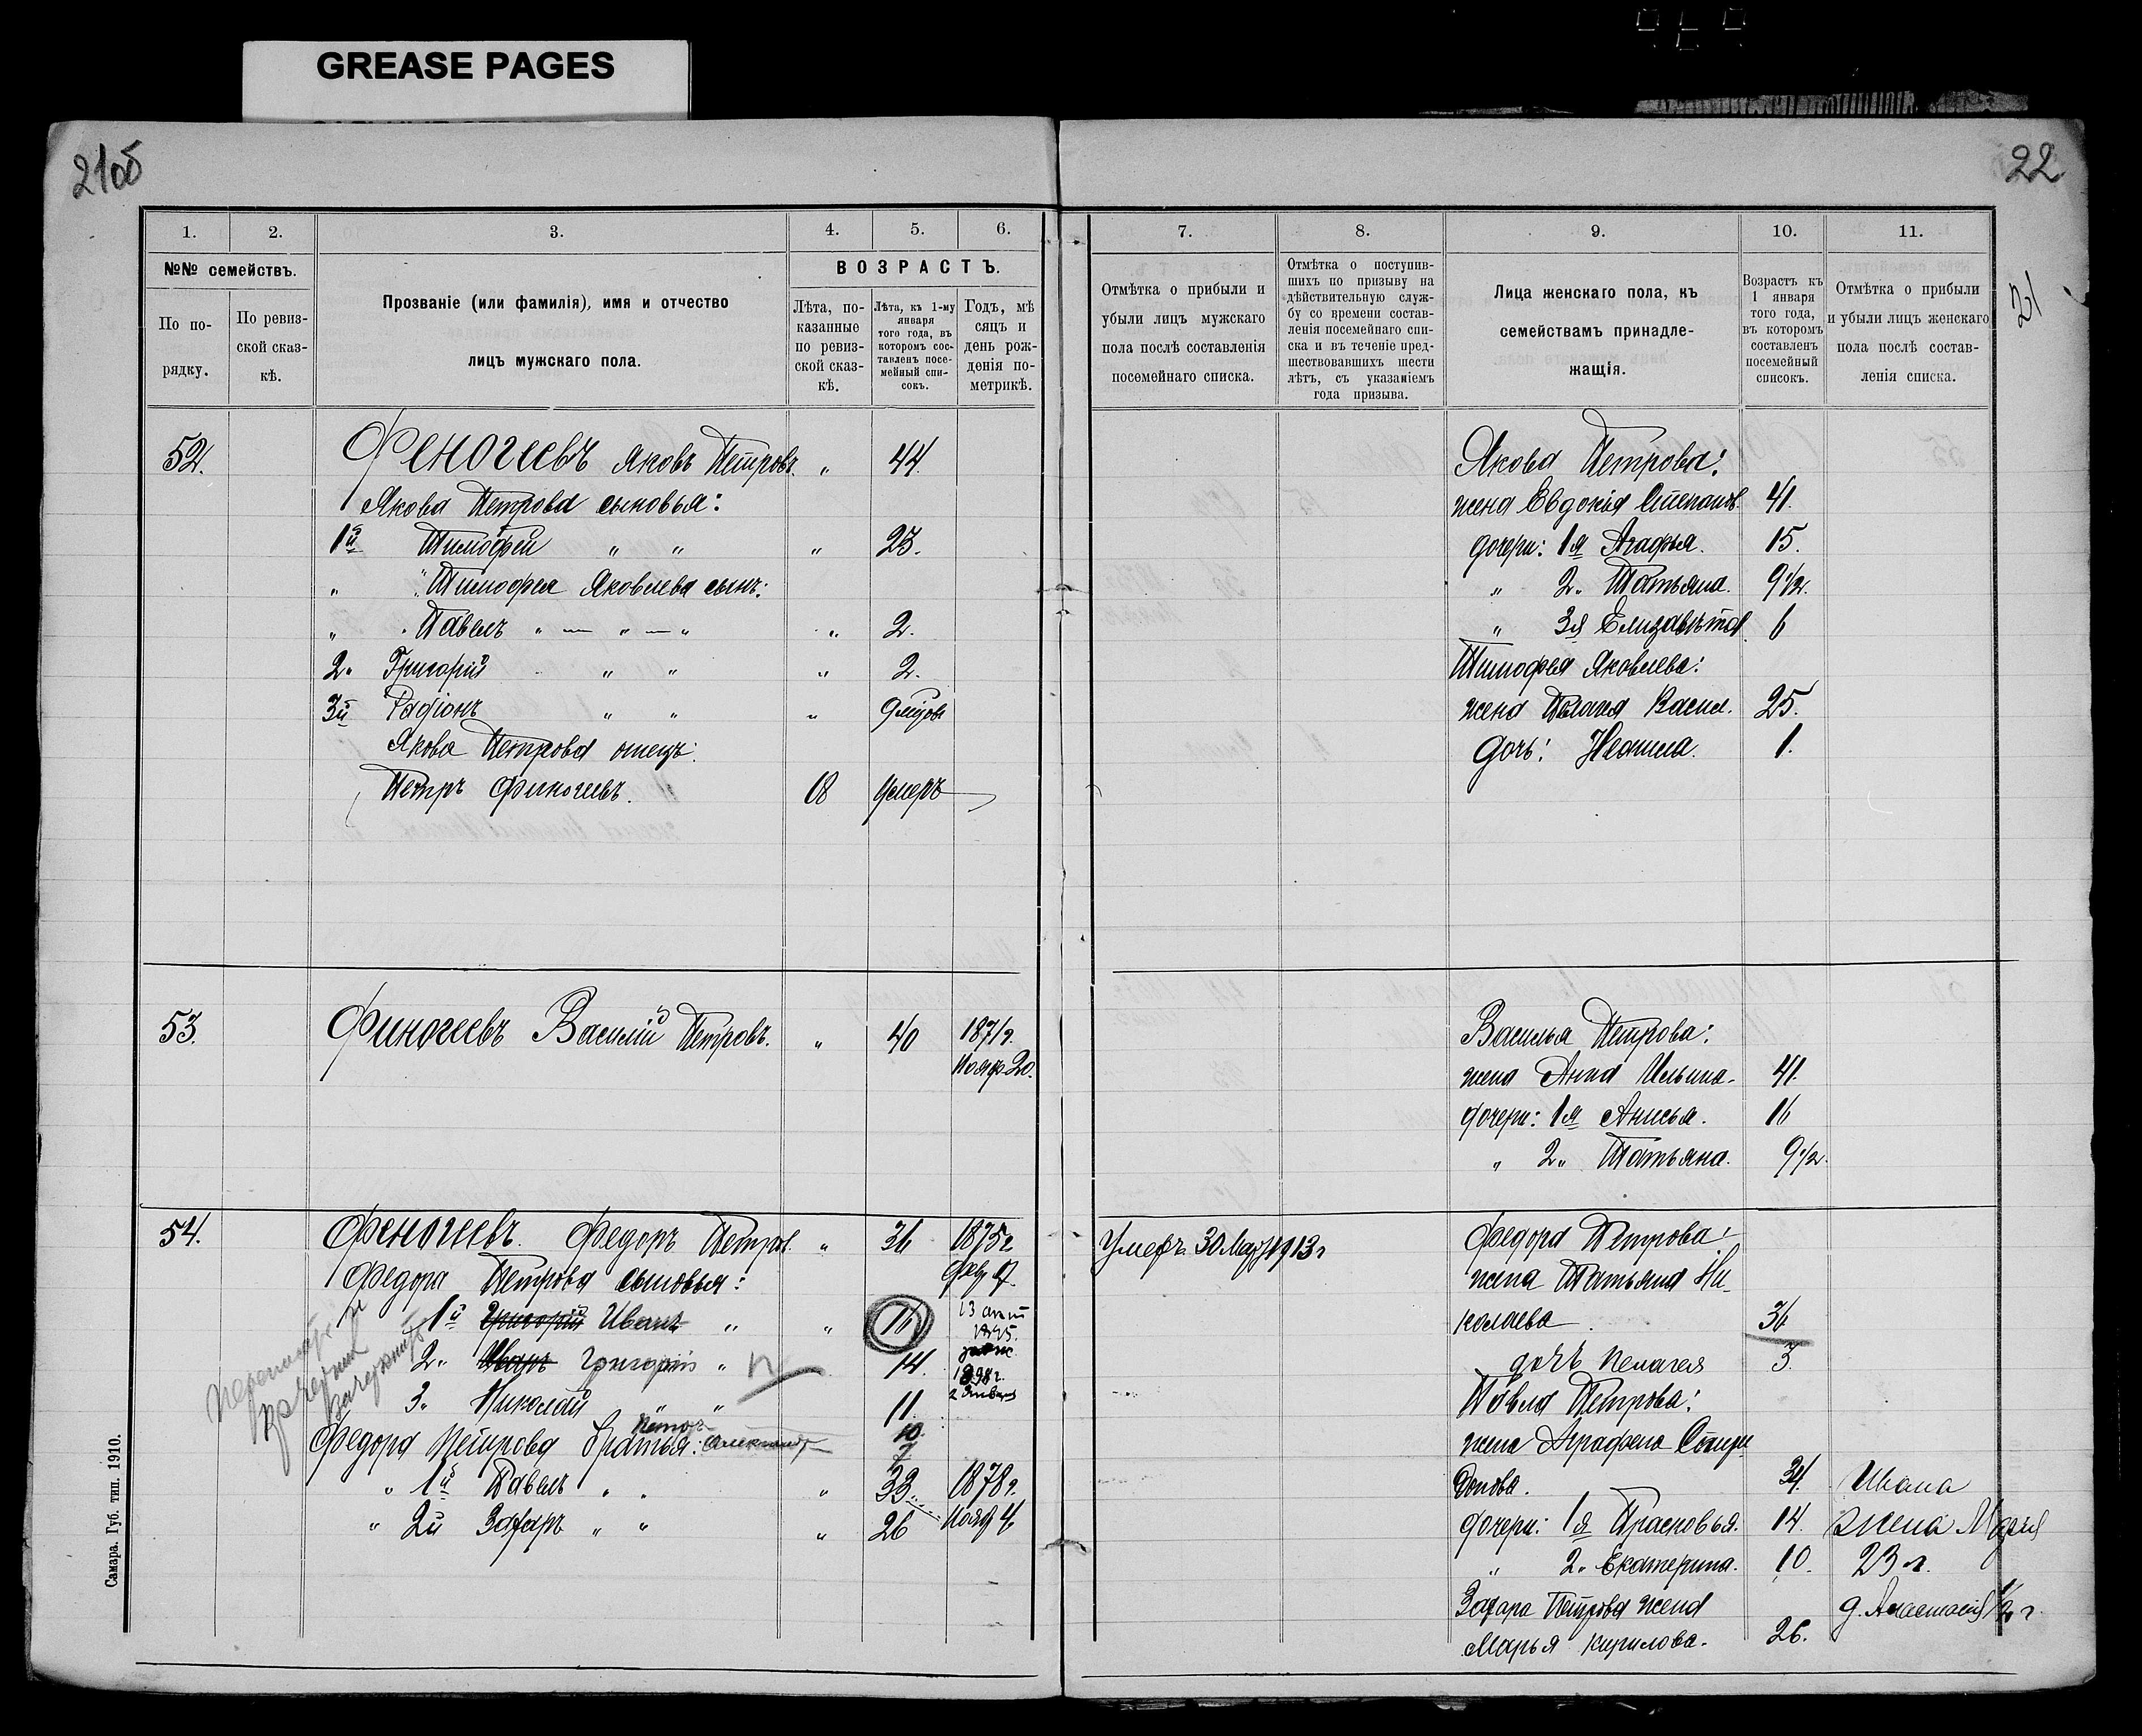 GREASE PAGES
21об
22
21
1.
2.
3.
4.
5.
6.
№№ семействъ.
ВОЗРАСТЪ.
По по-
рядку.
По ревиз-
ской сказ-
кѣ.
Прозваніе (или фамилія), имя и отчество
лицъ мужскаго пола.
Лѣта, по-
казанные
по ревиз-
ской сказ-
кѣ.
Лѣта, къ 1-му
января
того года, въ
которомъ сос-
тавленъ посе-
мейный спи-
сокъ.
Годъ, мѣ
сяцъ и
день рож-
денія по-
метрикѣ.
7.
8.
9.
10.
11.
Отмѣтка о прибыли и
убыли лицъ мужскаго
пола послѣ составленія
посемейнаго списка.
Отмѣтка о поступив-
шихъ по призыву на
дѣйствительную служ-
бу со времени состав-
ленія посемейнаго спи-
ска и въ теченіе пред-
шествовавшихъ шести
лѣтъ, съ указаніемъ
года призыва.
Лица женскаго пола, къ
семействамъ принадле-
жащія.
Возрастъ къ
1 января
того года,
въ которомъ
составленъ
посемейный
списокъ.
Отмѣтка о прибыли
и убыли лицъ женскаго
пола послѣ состав-
ленія списка.
52. Феногеевъ Яковъ Петровъ. " 44.
Якова Петрова сыновья:
1й Тимофей " " " 23.
" Тимофея Яковлева сынъ:
" Павелъ " — " — " " 2.
2" Григорій " " " 2.
3й Радіонъ " " " 9 мѣсов
Якова Петрова отецъ:
Петръ Финогеевъ. 18 умеръ
Якова Петрова:
жена Евдокія Степанов. 41.
дочери: 1я Агафья. 15.
" 2" Татьяна. 9 1/2.
" 3я Елизавѣта. 6
Тимофея Яковлева:
жена Пелагея Васил. 25.
дочь: Неонила. 1.
53. Финогеевъ Василій Петровъ. " 40 1871г.
Нояб. 20.
Василья Петрова:
жена Анна Ильина. 41.
дочери: 1я Анисья. 16
" 2" Татьяна. 9 1/2.
54. Феногеевъ. Федоръ Петров. " 36 1875г
Умеръ 30 Мар 1913г
Федора Петрова сыновья:
1й Григорій Иванъ " " 16 13
2" Иванъ Григорій " 14. 1898г.
2 Января
3. Николай " " 11.
Петръ 10
Федора Петрова братья: Александр 7
" 1й Павелъ " " " 33. 1878г.
" 2й Захаръ " " " 26 Нояб 4
Федора Петрова:
жена Татьяна Ни-
колаева 36
дочь Пелагея 3.
Павла Петрова:
жена Аграфена Спири
донова. 34. Ивана
дочери: 1я Прасковья. 14. жена Марія
" 2" Екатерина. 10. 23 г.
Захара Петрова жена д. Анастасія 1/2 г
Марья Кирилова. 26.
Самара. Губ. тип. 1910.